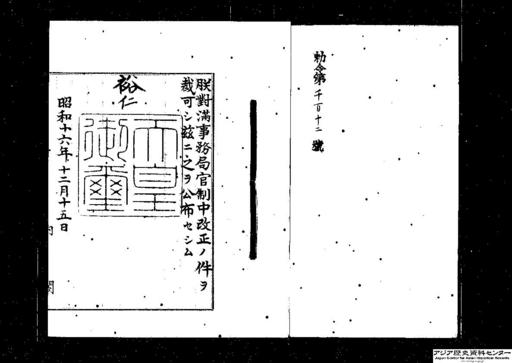 勅令第千百十二號
朕對滿事務局官制中改正ノ件ヲ
裁可シ玆ニ之ヲ公布セシム
裕仁
天皇御璽
昭和十六年十二月十五日
内閣
アジア歴史資料センター
Japan Center for Asian Historical Records